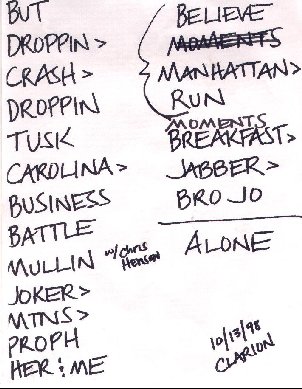 BUT
DROPPIN >
CRASH >
DROPPIN
TUSK
CAROLINA >
BUSINESS
BATTLE
MULLIN w/ Chris Henson
JOKER >
MTNS >
PROPH
HER & ME
BELIEVE
MOMENTS
MANHATTAN >
RUN
MOMENTS
BREAKFAST >
JABBER >
BRO JO
ALONE
10/13/98
CLARION